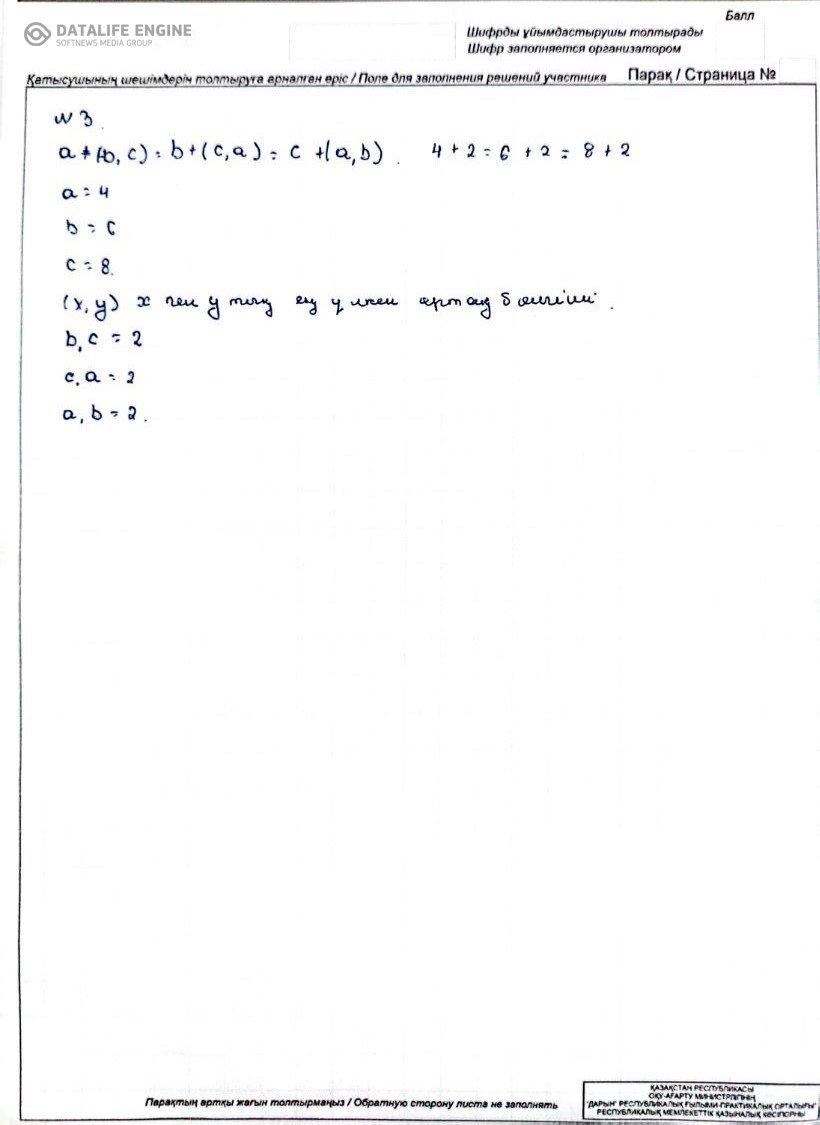 DATALIFE ENGINE
SOFTNEWS MEDIA GROUP
Балл
Шифрды ұйымдастырушы толтырады
Шифр заполняется организатором
Қатысушының шешімдерін толтыруға арналған өріс / Поле для заполнения решений участника Парақ / Страница №
№ 3.
a + (b, c) = b + (c, a) = c + (a, b). 4 + 2 = 6 + 2 = 8 + 2
a = 4
b = 6
c = 8.
(x, y) x пен y тің ең үлкен ортақ бөлгіші.
b, c = 2
c, a = 2
a, b = 2.
Парақтың артқы жағын толтырмаңыз / Обратную сторону листа не заполнять
ҚАЗАҚСТАН РЕСПУБЛИКАСЫ
ОҚУ-АҒАРТУ МИНИСТРЛІГІНІҢ
"ДАРЫН" РЕСПУБЛИКАЛЫҚ ҒЫЛЫМИ-ПРАКТИКАЛЫҚ ОРТАЛЫҒЫ"
РЕСПУБЛИКАЛЫҚ МЕМЛЕКЕТТІК ҚАЗЫНАЛЫҚ КӘСІПОРНЫ